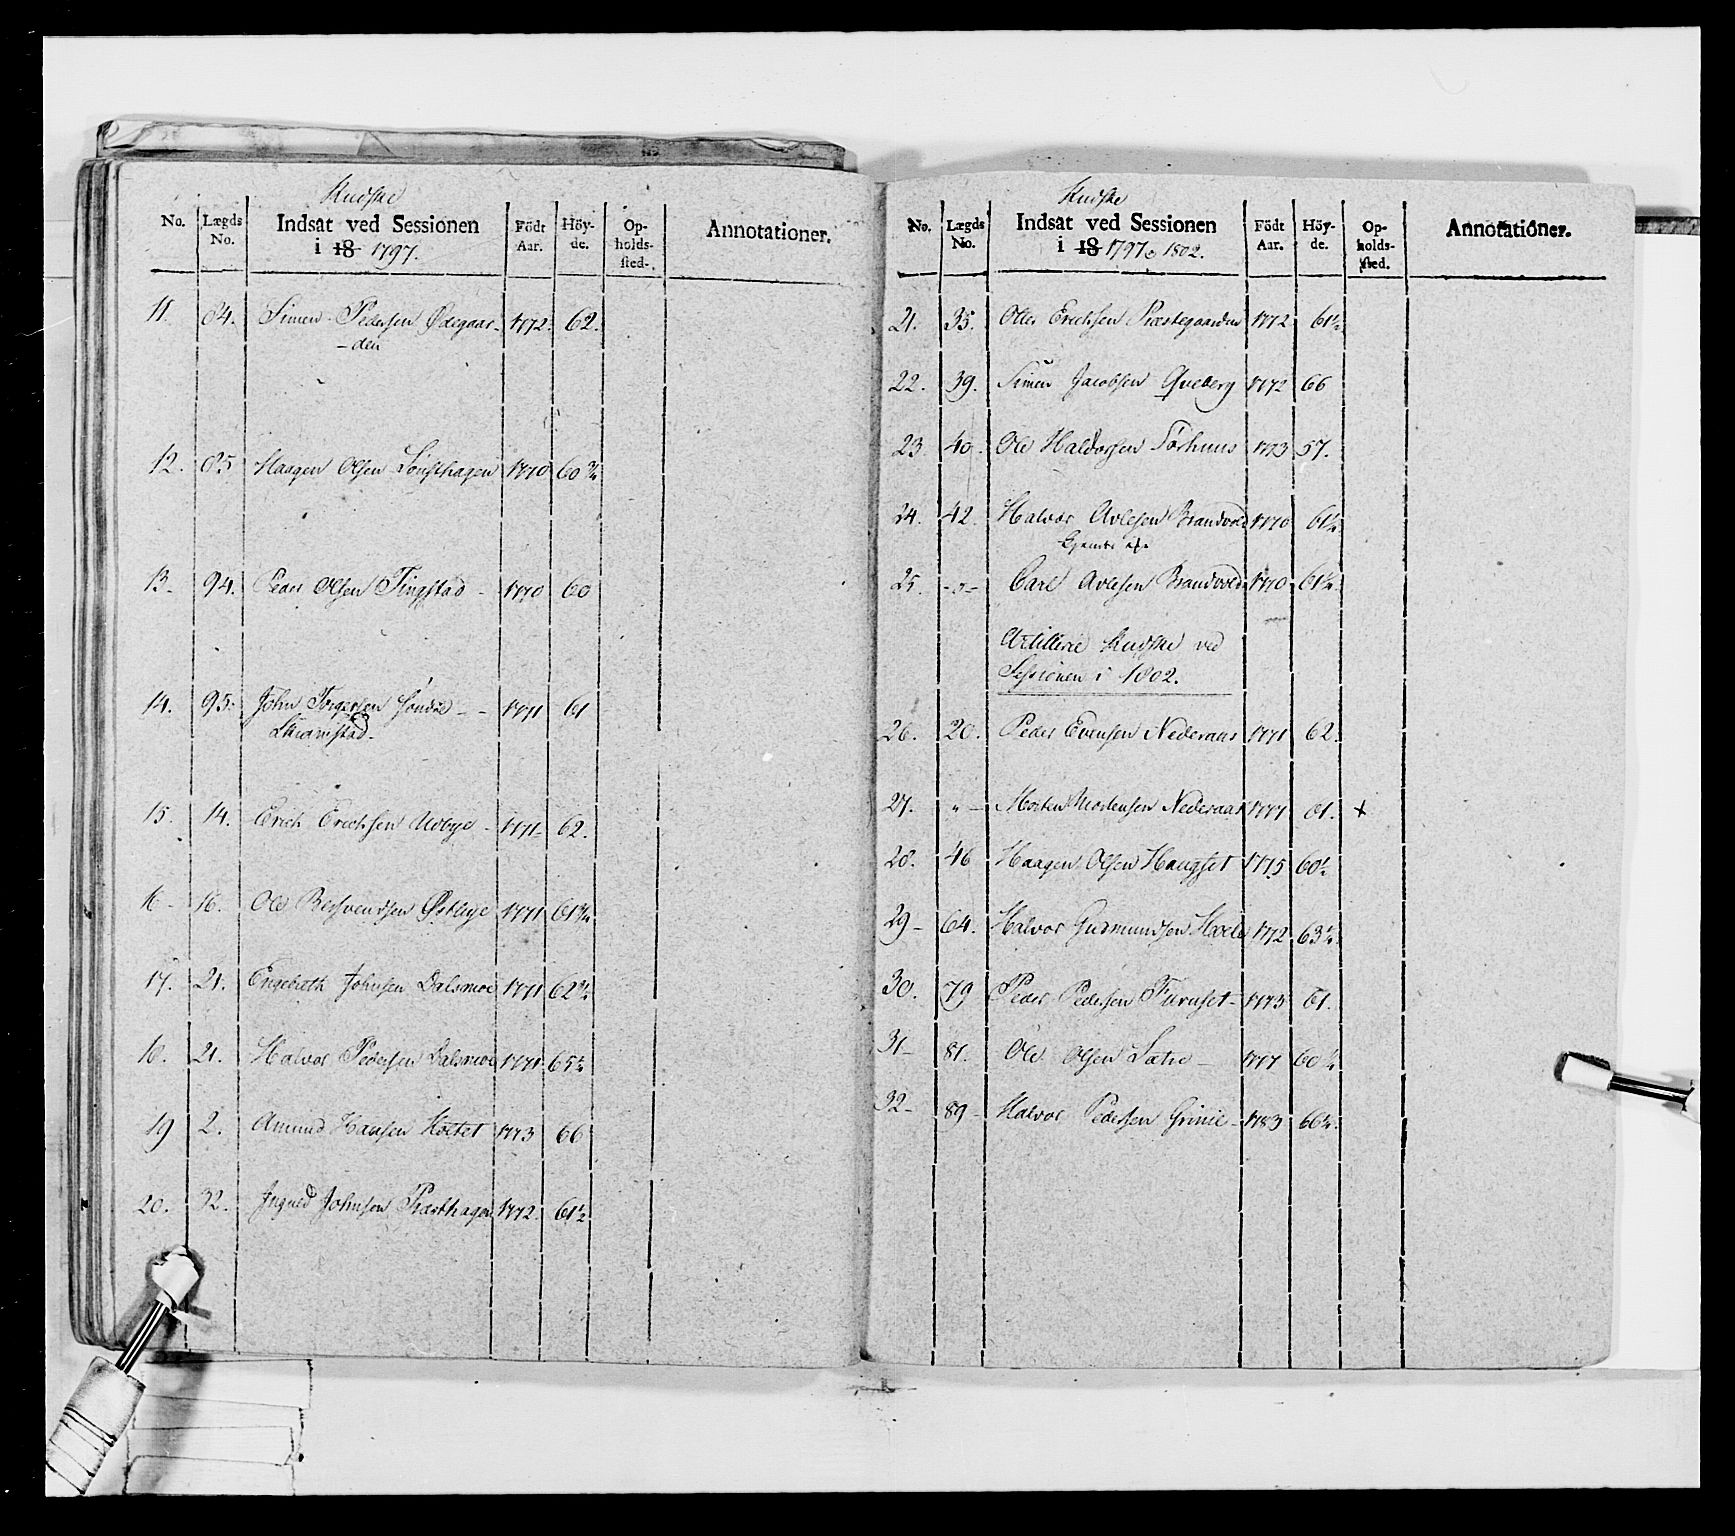 Kudske
No. Lægds No. Indsat ved Sessionen i 18 1797. Födt Aar. Höyde. Opholdssted. Annotationer.
11. 84. Simen Pedersen Ødegaar- 1772. 62.
-den
12. 85 Haagen Olsen Løvsthagen 1770 60 3/4
13- 94. Peder Olsen Tingstad - 1770 60
14. 95. John Torgersen Søndre - - 1771 61
15. 14. Erich Erichsen Udbye - 1771- 62.
16- 16. Ole Østbye 1771 61 3/4
17. 21. Engebreth Johnsen Dalsmoe 1771 62 3/4
18. 21. Halvor Pedersen Dalsmoe 1771 65 1/2
19 2. Amund Hansen Holtet 1773 66
20. 32. Johnsen Præsthagen 1772. 61 1/2
Kudske
No. Lægds No. Indsat ved Sessionen i 18 1797 & 1802. Födt Aar. Höyde. Opholdssted. Annotationer.
21. 35. Otter Erichsen Præstegaarden 1772 61 1/2
22. 39. Simen Jacobsen Qveberg 1772 66
23. 40. Ole Haldorsen Torhuus 1773 57.
24. 42. Halvor Avlesen Brandvold 1770 61 1/4
25. -"- Carl Avlesen Brandvold 1770 61 1/4
Artillerie Kudske ved
Sessionen i 1802.
26. 20. Peder Evensen Nederaas 1771 62.
27. " - Morten Mortensen Nederaas 1777 61. +
28. 46 Haagen Olsen Haugset 1775 60 1/2
29- 64. Halvor Gudmundsen Hvele 1772 63 1/4
30. 79 Peder Pedersen Furuset - 1773 61.
31- 81. Ole Olsen Sætre - 1777 60 1/4
32- 89- Halvor Pedersen Grinie - 1783 66 1/4